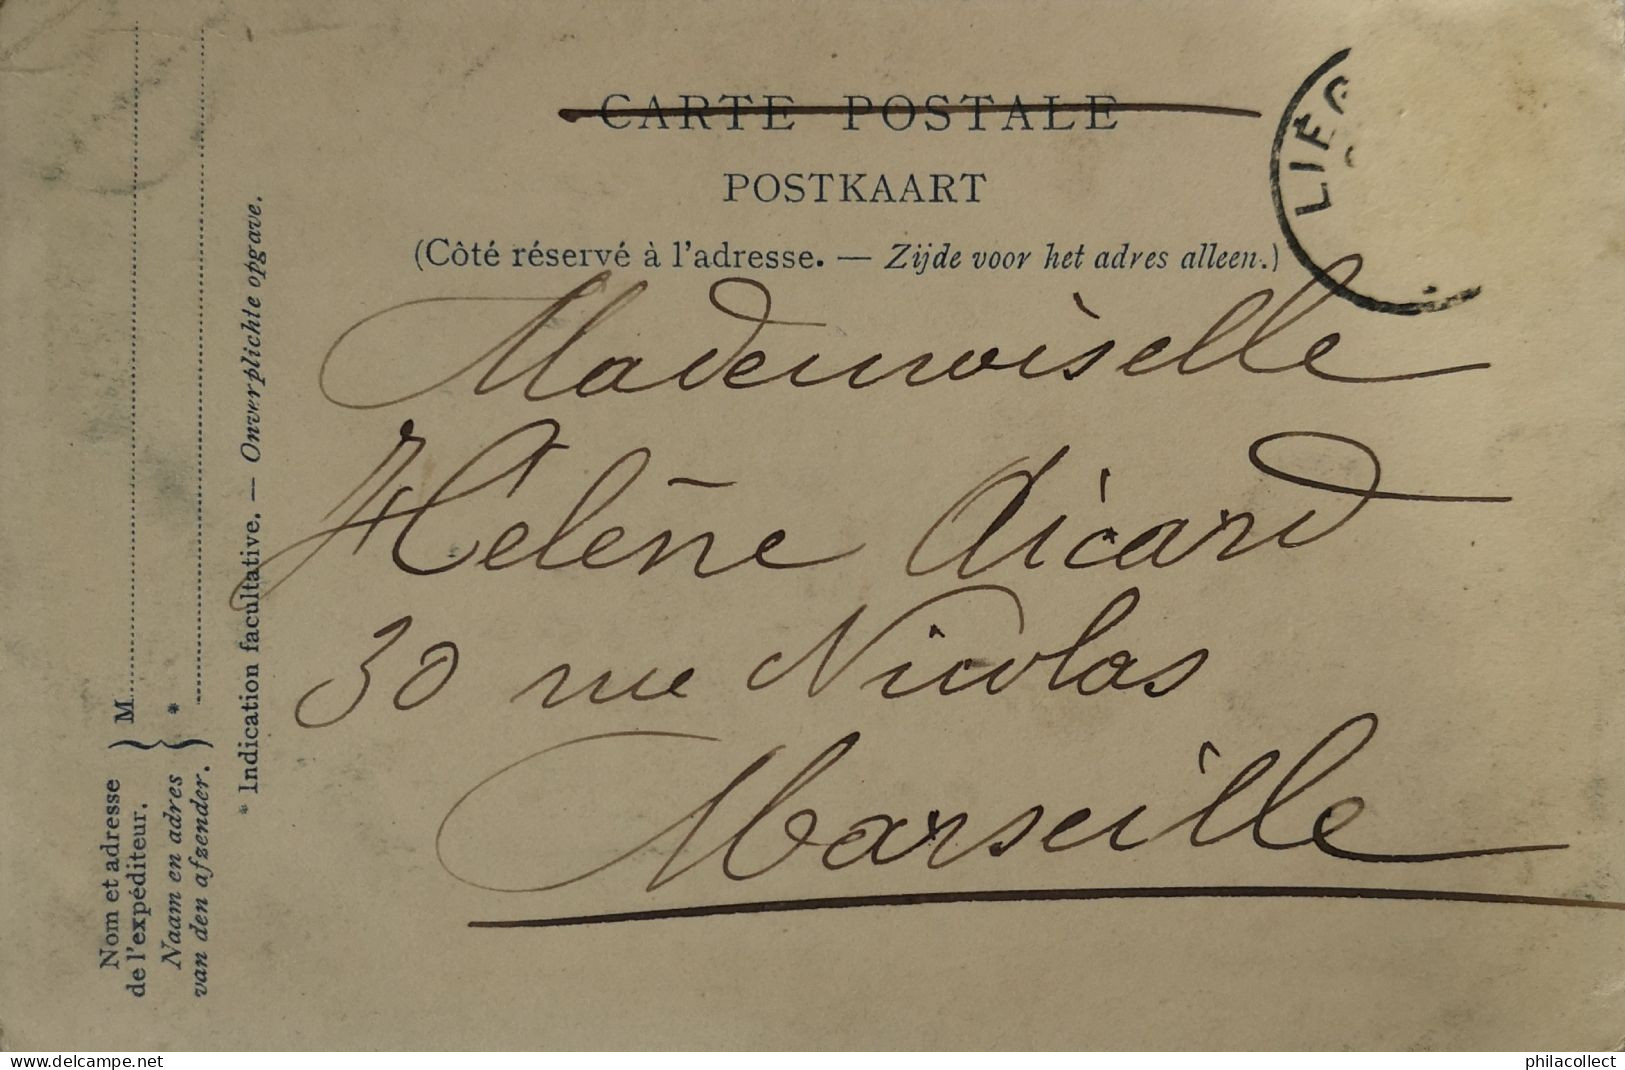 CARTE POSTALE
POSTKAART
(Côté réservé à l'adresse. — Zijde voor het adres alleen.)
LIÉG
Mademoiselle
Hélène Aicard
30 rue Nicolas
Marseille
Nom et adresse
de l'expéditeur.
Naam en adres
van den afzender.
M
*
* Indication facultative. — Onverplichte opgave.
www.delcampe.net
philacollect